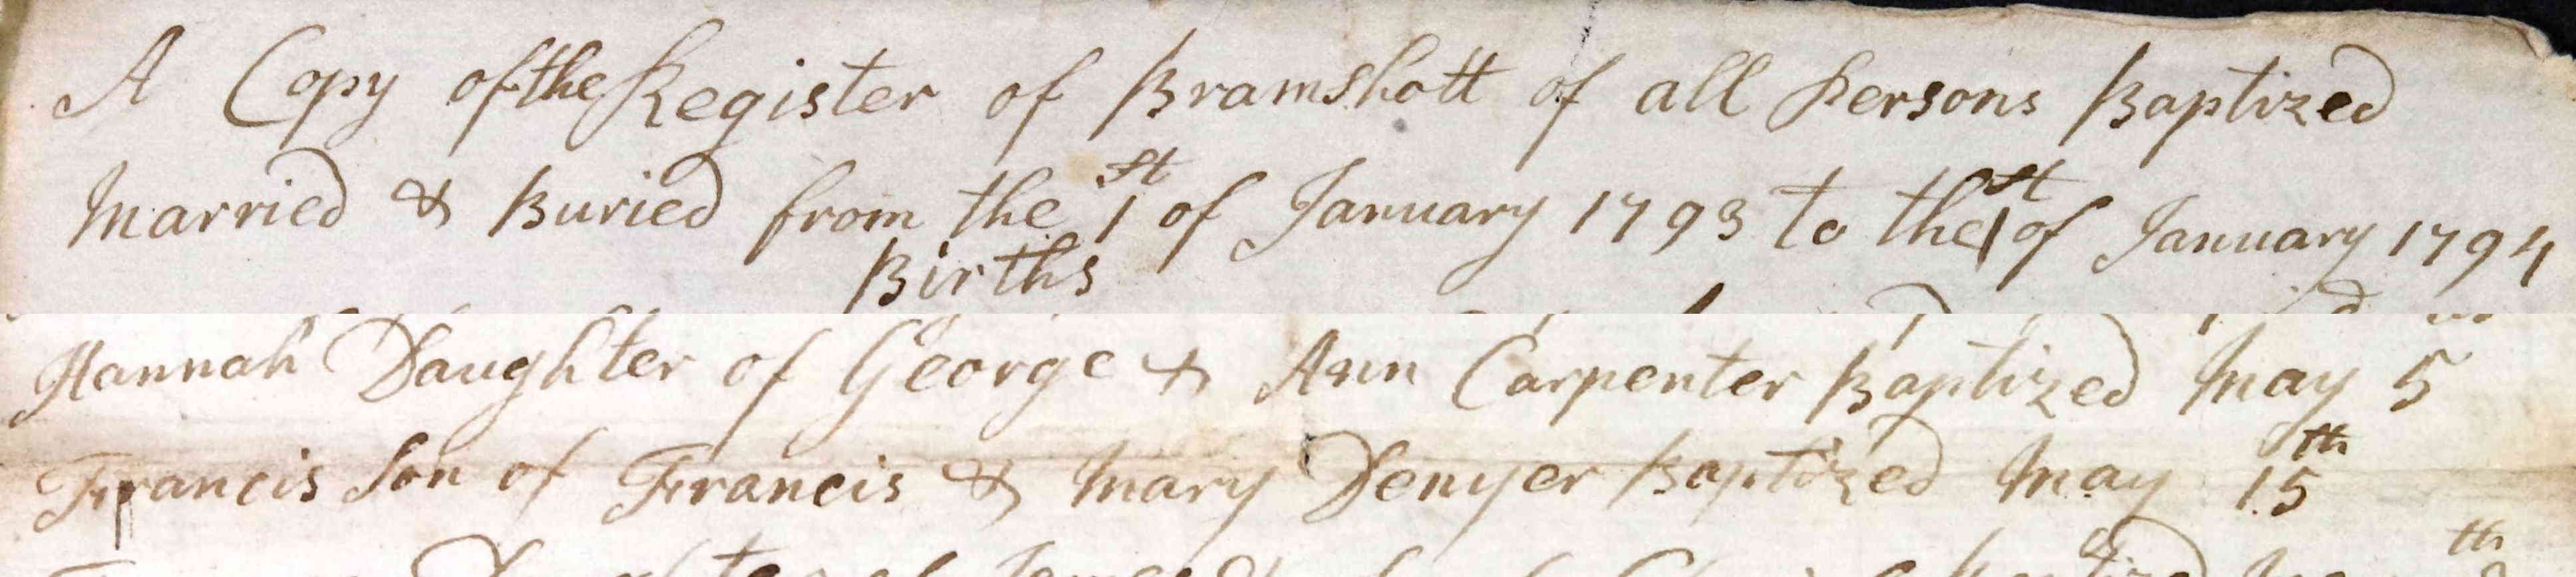 A Copy of the Register of Bramshott of all Persons Baptized
Married & Buried from the 1st of January 1793 to the 1st of January 1794
Births
Hannah Daughter of George & Ann Carpenter Baptized May 5
Francis Son of Francis & Mary Denyer Baptized May 15th